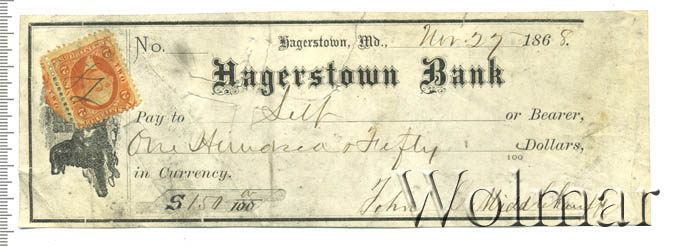 No. Hagerstown, Md., Nov. 27 1868.
Hagerstown Bank
Pay to Self or Bearer,
One Hundred & Fifty 100 Dollars,
in Currency.
$ 150 0/100 John
Wolmar